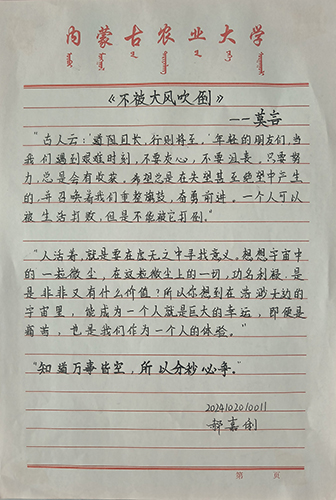 内蒙古农业大学
《不被大风吹倒》
——莫言
"古人云:'道阻且长,行则将至。'年轻的朋友们,当
我们遇到艰难时刻,不要灰心,不要沮丧,只要努
力,总是会有收获,希望总是在失望甚至绝望中产生
的,并召唤着我们重整旗鼓,奋勇前进。一个人可以
被生活打败,但是不能被它打倒。"
"人活着,就是要在虚无之中寻找意义。想想宇宙中
的一粒微尘,在这粒微尘上的一切,功名利禄,是
是非非又有什么价值?所以你想到在浩渺无边的
宇宙里,能成为一个人就是巨大的幸运,即便是
痛苦,也是我们作为一个人的体验。"
"知道万事皆空,所以分秒必争。"
2024102010011
郝嘉俐
第 页